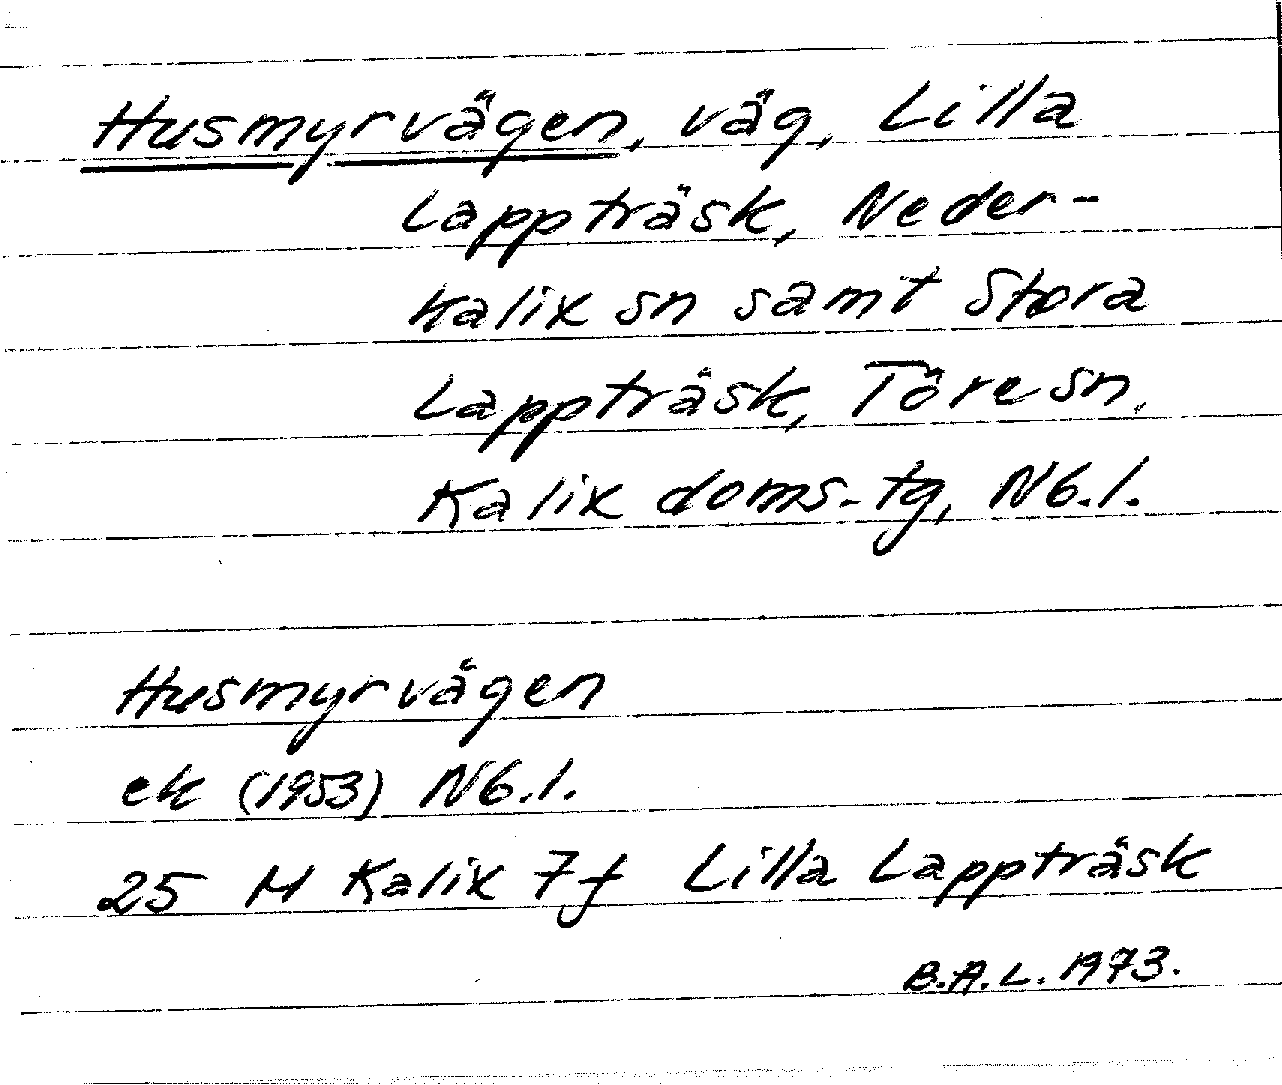 Husmyrvägen, väg, Lilla
Lappträsk, Neder-
kalix sn samt Stora
Lappträsk, Töre sn,
Kalix doms-tg, Nb.l.
Husmyrvägen
ek (1953) Nb.l.
25 M Kalix 7f Lilla Lappträsk
B.A.L. 1973.